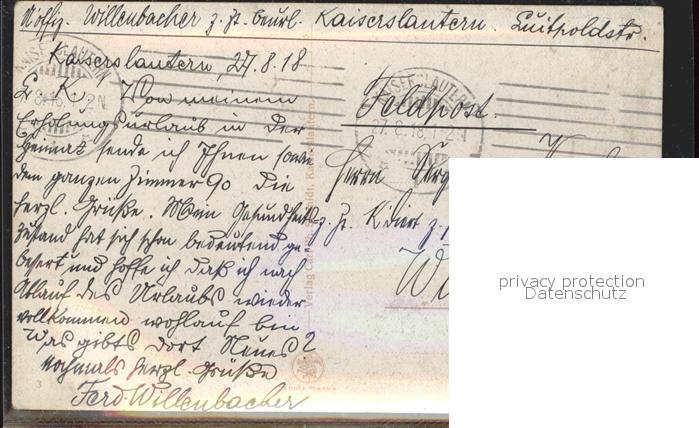 Uoffz. Willenbacher z. Zt. beurl. Kaiserslautern. Luitpoldstr.
Kaiserslautern, 27.8.18
L. K. Von meinem
Erholungsurlaub in der
Heimat sende ich Ihnen sowie
dem ganzen Zimmer 90 die
herzl. Grüße. Mein Gesundheits-
zustand hat sich schon bedeutend ge-
bessert und hoffe ich daß ich nach
Ablauf des Urlaubs wieder
vollkommen wohlauf bin
Was gibts dort Neues?
Nochmals herzl. Grüße
Ferd. Willenbacher
KAISERSLAUTERN
27.8.18.1-2N
Feldpost.
Herrn Serg
z. Zt.
Verlag Carl
Kaiserslautern.
privacy protection
Datenschutz